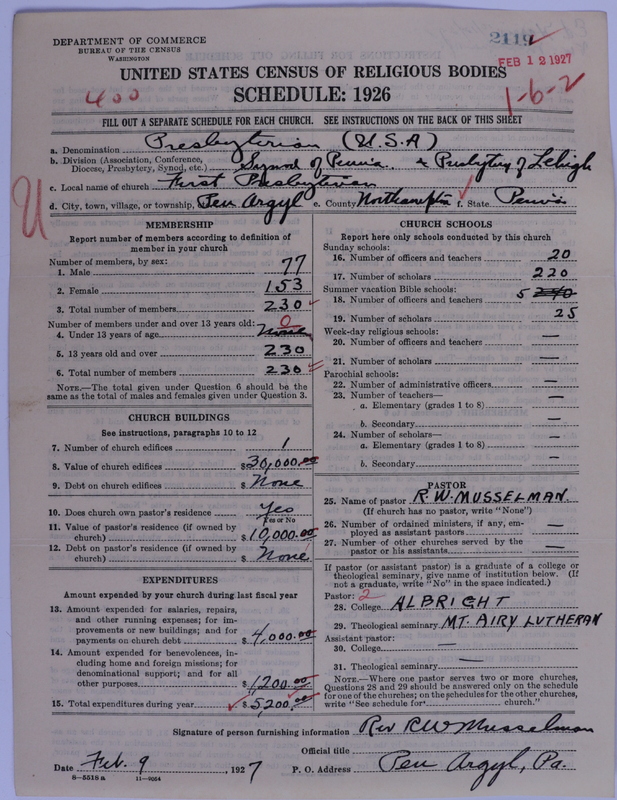 DEPARTMENT OF COMMERCE
BUREAU OF THE CENSUS
WASHINGTON
2119
FEB 12 1927
UNITED STATES CENSUS OF RELIGIOUS BODIES
SCHEDULE: 1926
400
1-6-2
FILL OUT A SEPARATE SCHEDULE FOR EACH CHURCH. SEE INSTRUCTIONS ON THE BACK OF THIS SHEET
a. Denomination Presbyterian (U.S.A)
b. Division (Association, Conference, Diocese, Presbytery, Synod, etc.) Synod of Penn'a. & Presbytery of Lehigh
c. Local name of church First Presbyterian
U
d. City, town, village, or township, Pen Argyl e. County Northampton f. State Penn'a
MEMBERSHIP
Report number of members according to definition of
member in your church
Number of members, by sex:
1. Male 77
2. Female 153
3. Total number of members 230
Number of members under and over 13 years old: 0
4. Under 13 years of age None
5. 13 years old and over 230
6. Total number of members 230
NOTE.—The total given under Question 6 should be the
same as the total of males and females given under Question 3.
CHURCH BUILDINGS
See instructions, paragraphs 10 to 12
7. Number of church edifices 1
8. Value of church edifices $30,000.00
9. Debt on church edifices $ None
10. Does church own pastor's residence Yes
Yes or No
11. Value of pastor's residence (if owned by
church) $10,000.00
12. Debt on pastor's residence (if owned by
church) $ None
EXPENDITURES
Amount expended by your church during last fiscal year
13. Amount expended for salaries, repairs,
and other running expenses; for im-
provements or new buildings; and for
payments on church debt $4,000.00
14. Amount expended for benevolences, in-
cluding home and foreign missions; for
denominational support; and for all
other purposes $1200.00
15. Total expenditures during year $5,200.00
CHURCH SCHOOLS
Report here only schools conducted by this church
Sunday schools:
16. Number of officers and teachers 20
17. Number of scholars 220
Summer vacation Bible schools:
18. Number of officers and teachers 5 240
19. Number of scholars 25
Week-day religious schools:
20. Number of officers and teachers —
21. Number of scholars —
Parochial schools:
22. Number of administrative officers —
23. Number of teachers—
a. Elementary (grades 1 to 8) —
b. Secondary —
24. Number of scholars—
a. Elementary (grades 1 to 8) —
b. Secondary —
PASTOR
25. Name of pastor R.W. MUSSELMAN
(If church has no pastor, write "None")
26. Number of ordained ministers, if any, em-
ployed as assistant pastors —
27. Number of other churches served by the
pastor or his assistants —
If pastor (or assistant pastor) is a graduate of a college or
theological seminary, give name of institution below. (If
not a graduate, write "No" in the space indicated.)
Pastor: 2
28. College ALBRIGHT
29. Theological seminary MT. AIRY LUTHERAN
Assistant pastor:
30. College —
31. Theological seminary —
NOTE.—Where one pastor serves two or more churches,
Questions 28 and 29 should be answered only on the schedule
for one of the churches; on the schedules for the other churches,
write "See schedule for church."
Signature of person furnishing information Rev R W Musselman
Official title
Date Feb. 9, 1927 P. O. Address Pen Argyl, Pa.
8—5518 a 11—9064